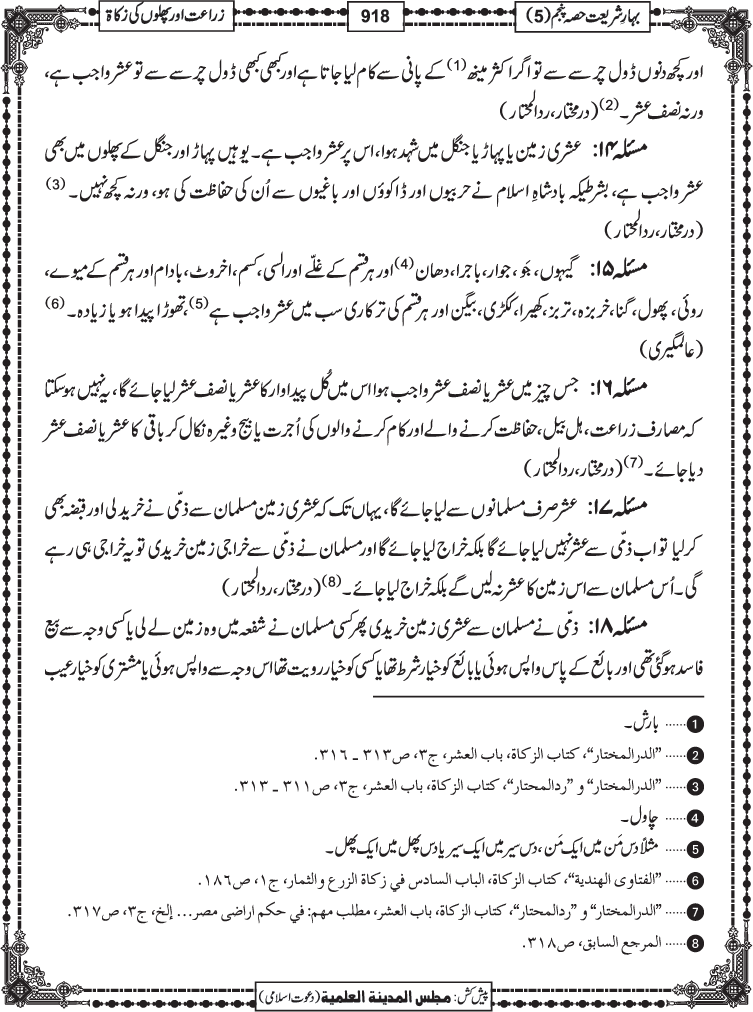 بہارِ شریعت حصہ پنجم (5)
918
زراعت اور پھلوں کی زکاۃ
اور کچھ دنوں ڈول چرسے سے تو اگر اکثر مینھ (1) کے پانی سے کام لیا جاتا ہے اور کبھی کبھی ڈول چرسے سے تو عشر واجب ہے،
ورنہ نصف عشر۔ (2) (درمختار، ردالمحتار)
مسئلہ ۱۴: عشری زمین یا پہاڑ یا جنگل میں شہد ہوا، اس پر عشر واجب ہے۔ یوہیں پہاڑ اور جنگل کے پھلوں میں بھی
عشر واجب ہے، بشرطیکہ بادشاہِ اسلام نے حربیوں اور ڈاکوؤں اور باغیوں سے اُن کی حفاظت کی ہو، ورنہ کچھ نہیں۔ (3)
(درمختار، ردالمحتار)
مسئلہ ۱۵: گیہوں، جَو، جوار، باجرا، دھان (4) اور ہر قسم کے غلّے اور السی، کسم، اخروٹ، بادام اور ہر قسم کے میوے،
روئی، پھول، گنا، خربزہ، تربز، کھیرا، ککڑی، بیگن اور ہر قسم کی ترکاری سب میں عشر واجب ہے (5)، تھوڑا پیدا ہو یا زیادہ۔ (6)
(عالمگیری)
مسئلہ ۱۶: جس چیز میں عشر یا نصف عشر واجب ہوا اس میں کُل پیداوار کا عشر یا نصف عشر لیا جائے گا، یہ نہیں ہوسکتا
کہ مصارف زراعت، ہل بیل، حفاظت کرنے والے اور کام کرنے والوں کی اُجرت یا بیج وغیرہ نکال کر باقی کا عشر یا نصف عشر
دیا جائے۔ (7) (درمختار، ردالمحتار)
مسئلہ ۱۷: عشر صرف مسلمانوں سے لیا جائے گا، یہاں تک کہ عشری زمین مسلمان سے ذمّی نے خرید لی اور قبضہ بھی
کر لیا تو اب ذمّی سے عشر نہیں لیا جائے گا بلکہ خراج لیا جائے گا اور مسلمان نے ذمّی سے خراجی زمین خریدی تو یہ خراجی ہی رہے
گی۔ اُس مسلمان سے اس زمین کا عشر نہ لیں گے بلکہ خراج لیا جائے۔ (8) (درمختار، ردالمحتار)
مسئلہ ۱۸: ذمّی نے مسلمان سے عشری زمین خریدی پھر کسی مسلمان نے شفعہ میں وہ زمین لے لی یا کسی وجہ سے بیع
فاسد ہوگئی تھی اور بائع کے پاس واپس ہوئی یا بائع کو خیارِ شرط تھا یا کسی کو خیارِ رویت تھا اس وجہ سے واپس ہوئی یا مشتری کو خیار عیب
1 ...... بارش۔
2 ...... "الدرالمختار"، كتاب الزكاة، باب العشر، ج۳، ص۳۱۳ ـ ۳۱۶.
3 ...... "الدرالمختار" و "ردالمحتار"، كتاب الزكاة، باب العشر، ج۳، ص۳۱۱ ـ ۳۱۳.
4 ...... چاول۔
5 ...... مثلاً دس مَن میں ایک مَن، دس سیر میں ایک سیر یا دس پھل میں ایک پھل۔
6 ...... "الفتاوى الهندية"، كتاب الزكاة، الباب السادس في زكاة الزرع والثمار، ج۱، ص۱۸۶.
7 ...... "الدرالمختار" و "ردالمحتار"، كتاب الزكاة، باب العشر، مطلب مهم: في حكم اراضى مصر... إلخ، ج۳، ص۳۱۷.
8 ...... المرجع السابق، ص۳۱۸.
پیش کش: مجلس المدينة العلمية (دعوت اسلامی)